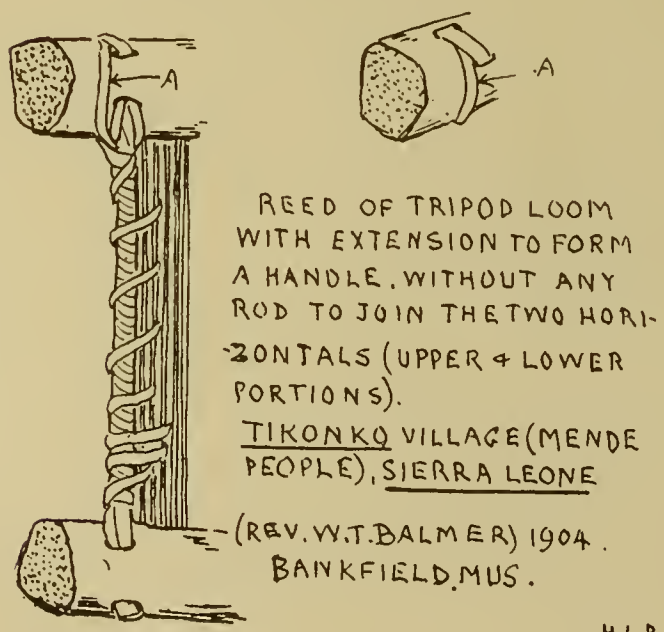 A
A
REED OF TRIPOD LOOM
WITH EXTENSION TO FORM
A HANDLE, WITHOUT ANY
ROD TO JOIN THE TWO HORI-
-ZONTALS (UPPER & LOWER
PORTIONS).
TIKONKO VILLAGE (MENDE
PEOPLE), SIERRA LEONE
(REV. W.T. BALMER) 1904.
BANKFIELD. MUS.